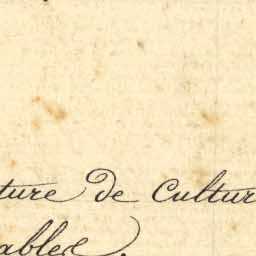 ture de Cultur
ables.